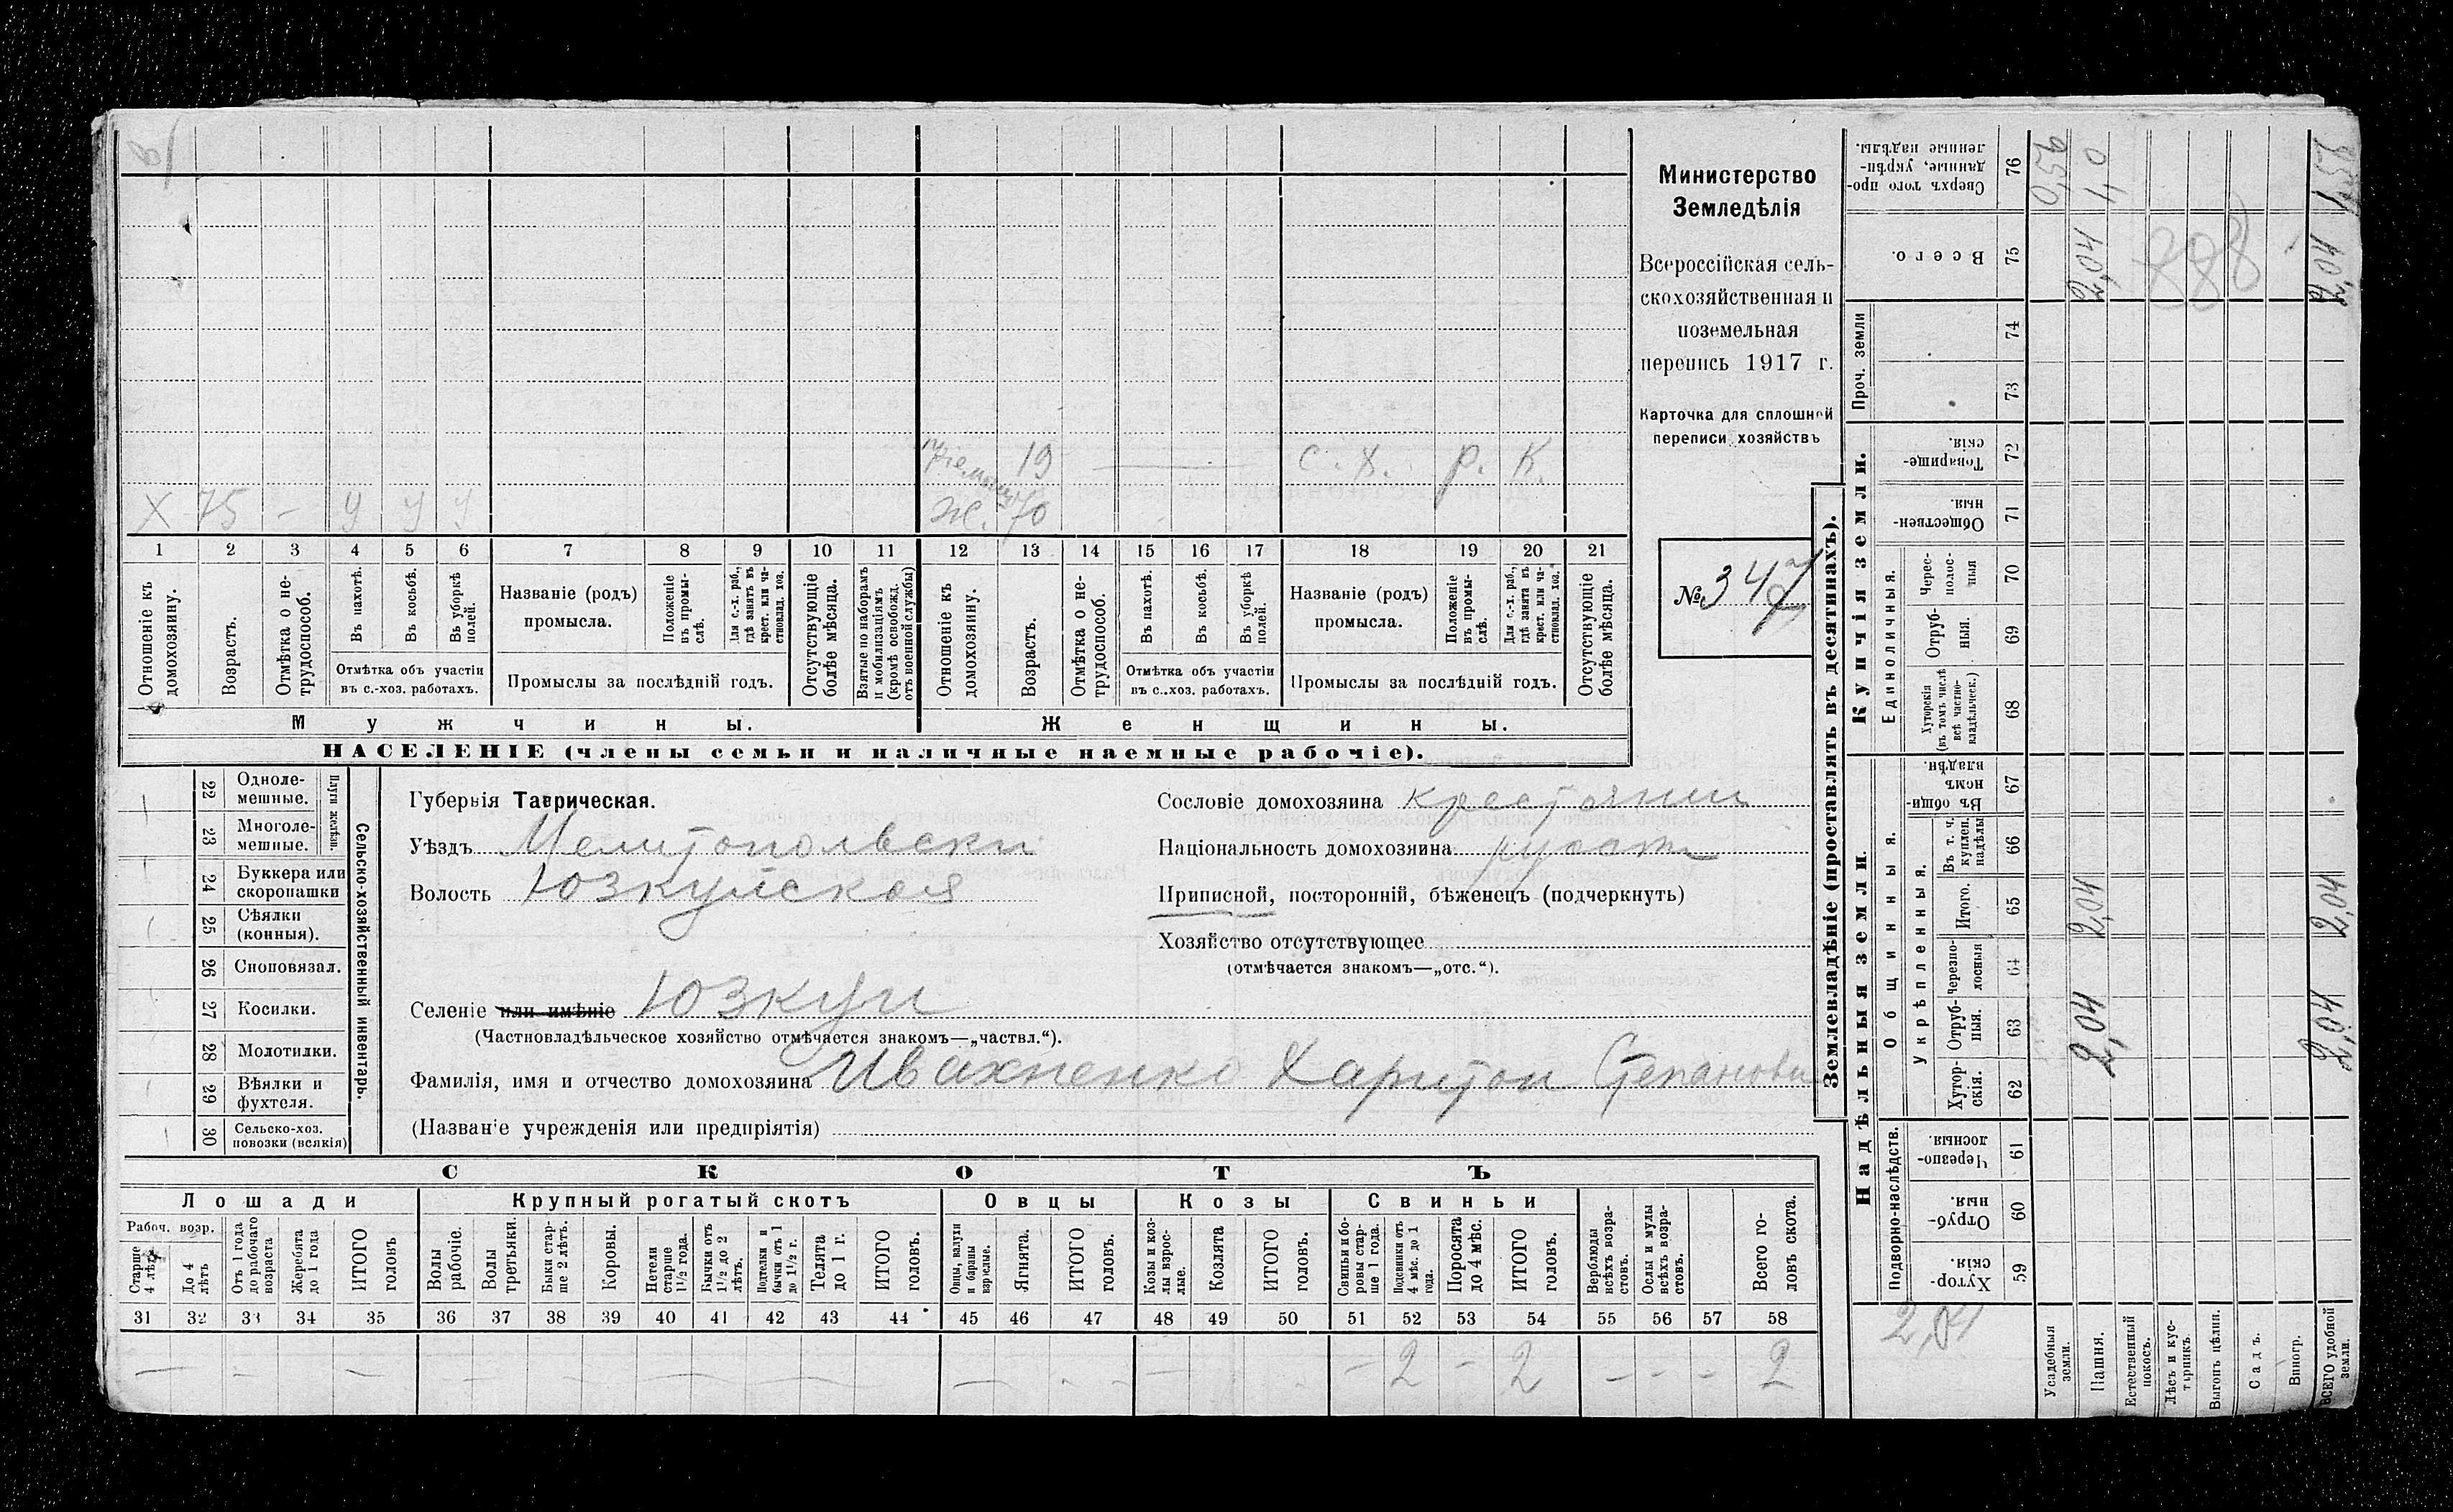 Министерство
Земледѣлія
Всероссійская сель-
скохозяйственная и
поземельная
перепись 1917 г.
Карточка для сплошной
переписи хозяйствъ
№ 347
пріемыш 19 — с. х. р. к.
Х 75 - у у у Ж. 70
1 2 3 4 5 6 7 8 9 10 11 12 13 14 15 16 17 18 19 20 21
Отношеніе къ домохозяину.
Возрастъ.
Отмѣтка о не-трудоспособ.
Въ пахотѣ.
Въ косьбѣ.
Въ уборкѣ полей.
Отмѣтка объ участіи
въ с.-хоз. работахъ.
Названіе (родъ)
промысла.
Положеніе въ промы-слѣ.
Для с.-х. раб., гдѣ занятъ въ крест. или ча-стновлад. хоз.
Промыслы за послѣдній годъ.
Отсутствующіе болѣе мѣсяца.
Взятые по наборамъ и мобилизаціямъ (кромѣ освобожд. отъ военной службы)
Отношеніе къ домохозяину.
Возрастъ.
Отмѣтка о не-трудоспособ.
Въ пахотѣ.
Въ косьбѣ.
Въ уборкѣ полей.
Отмѣтка объ участіи
въ с.-хоз. работахъ.
Названіе (родъ)
промысла.
Положеніе въ промы-слѣ.
Для с.-х. раб., гдѣ занята въ крест. или ча-стновлад. хоз.
Промыслы за послѣдній годъ.
Отсутствующіе болѣе мѣсяца.
Мужчины. Женщины.
НАСЕЛЕНІЕ (члены семьи и наличные наемные рабочіе).
22 Одноле-мешные.
23 Многоле-мешные.
Плуги желѣзн.
24 Буккера или скоропашки
25 Сѣялки (конныя).
26 Сноповязал.
27 Косилки.
28 Молотилки.
29 Вѣялки и фухтеля.
30 Сельско-хоз. повозки (всякія)
Сельско-хозяйственный инвентарь.
Губернія Таврическая.
Уѣздъ Мелитопольски
Волость Юзкуйская
Селеніе или имѣніе Юзкуи
(Частновладѣльческое хозяйство отмѣчается знакомъ—„частвл.“).
Фамилія, имя и отчество домохозяина Ивахненко Харитон Степанови
(Названіе учрежденія или предпріятія)
Сословіе домохозяина крестьянин
Національность домохозяина
Приписной, посторонній, бѣженецъ (подчеркнуть)
Хозяйство отсутствующее
(отмѣчается знакомъ—„отс.“).
СКОТЪ
Лошади Крупный рогатый скотъ Овцы Козы Свиньи
Рабоч. возр.
Старше 4 лѣтъ
До 4 лѣтъ
Отъ 1 года до рабочаго возраста
Жеребята до 1 года
ИТОГО головъ
Волы рабочіе.
Волы третьяки.
Быки стар-ше 2 лѣтъ.
Коровы.
Нетели старше 1½ года.
Бычки отъ 1½ до 2 лѣтъ.
Подтелки и бычки отъ 1 до 1½ г.
Телята до 1 г.
ИТОГО головъ.
Овцы, валухи и бараны взрослые.
Ягнята.
ИТОГО головъ.
Козы и коз-лы взрос-лые.
Козлята
ИТОГО головъ.
Свиньи и бо-ровы стар-ше 1 года.
Подсвинки отъ 4 мѣс. до 1 года.
Поросята до 4 мѣс.
ИТОГО головъ.
Верблюды всѣхъ возра-стовъ.
Ослы и мулы всѣхъ возра-стовъ.
Всего го-ловъ скота.
31 32 33 34 35 36 37 38 39 40 41 42 43 44 45 46 47 48 49 50 51 52 53 54 55 56 57 58
— - - — - 2 - 2 - - - 2
Землевладѣніе (проставлять въ десятинахъ).
Купчія земли.
Надѣльныя земли.
Сверхъ того про-данные, укрѣп-ленные надѣлы. 76
Всего. 75
Проч. земли
74
73
Товарище-скія. 72
Обществен-ныя. 71
Единоличныя.
Черес-полос-ныя 70
Отруб-ныя. 69
Хуторскія (въ томъ числѣ всѣ частно-владѣльческ.) 68
Общинныя.
Въ общи-номъ владѣн. 67
Укрѣпленныя.
Въ т. ч. куплен. надѣлы 66
Итого. 65
Черезпо-лосныя 64
Отруб-ныя. 63
Хутор-скія. 62
Подворно-наслѣдств.
Черезпо-лосныя. 61
Отруб-ныя. 60
Хутор-скія. 59
Усадебныя земли.
Пашня.
Естественный покосъ.
Лѣсъ и кус-тарникъ.
Выгонъ цѣлин.
Садъ.
Виногр.
ВСЕГО удобной земли.
2,04
2,04
2,04
2,04
2,04
2,04
2,04
888